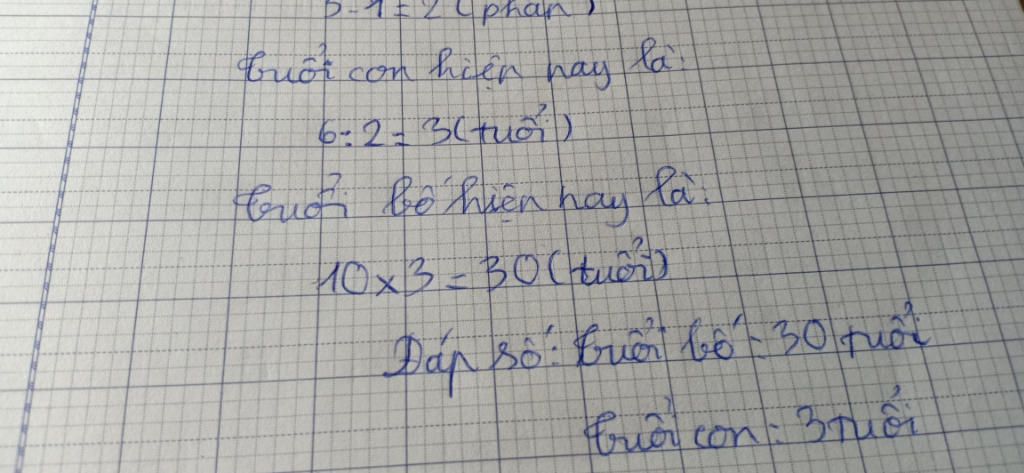 3-1=2 (phần)
tuổi con hiện nay là:
6:2=3(tuổi)
tuổi bố hiện nay là:
10x3=30(tuổi)
Đáp số: tuổi bố: 30 tuổi
tuổi con: 3 tuổi